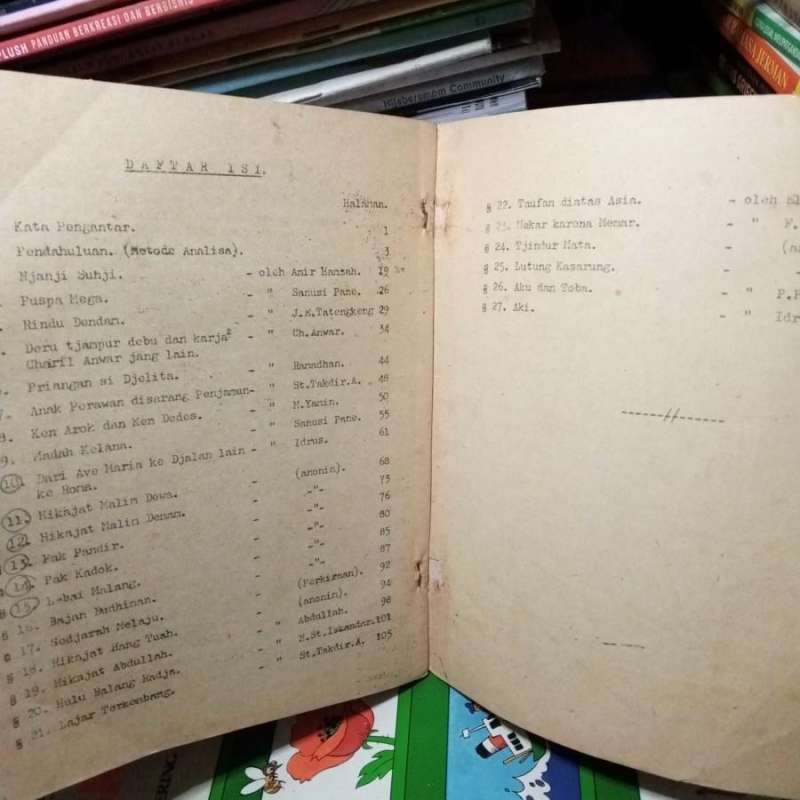 PLUSH PANDUAN BERKREASI DAN BERBISNIS
Hijabersmom Community
JERMAN
DAFTAR ISI.
Halaman.
Kata Pengantar. 1
Pendahuluan. (Metode Analisa). 3
Njanji Sunji. - oleh Amir Hamzah. 19
Puspa Mega. - " Sanusi Pane. 26
Rindu Dendam. - " J.E.Tatengkeng 29
Deru tjampur debu dan karja2 - " Ch.Anwar. 34
Chairil Anwar jang lain.
Priangan si Djelita. - " Ramadhan. 44
7. Anak Perawan disarang Penjamun- " St.Takdir.A. 48
8. Ken Arok dan Ken Dedes. - " M.Yamin. 50
9. Madah Kelana. - " Sanusi Pane. 55
10. Dari Ave Maria ke Djalan lain - " Idrus. 61
ke Roma.
11. Hikajat Malin Dewa. - (anonim). 68
12. Hikajat Malin Deman. - -"- 73
13. Pak Pandir. - -"- 76
14. Pak Kadok. - -"- 80
§ 15. Lebai Malang. - -"- 85
§ 16. Bajan Budiman. - -"- 87
§ 17. Sedjarah Melaju. - (Perkiraan). 92
§ 18. Hikajat Hang Tuah. - (anonim). 94
§ 19. Hikajat Abdullah. - " Abdullah. 98
§ 20. Hulu Balang Radja. - " N.St.Iskandar.101
§ 21. Lajar Terkembang. - " St.Takdir.A. 105
§ 22. Taufan diatas Asia. - oleh El
§ 23. Mekar karena Memar. - " F.
§ 24. Tjindur Mata. - (an
§ 25. Lutung Kasarung. -
§ 26. Aku dan Toba. - " P.P
§ 27. Aki. - " Idr
------//------